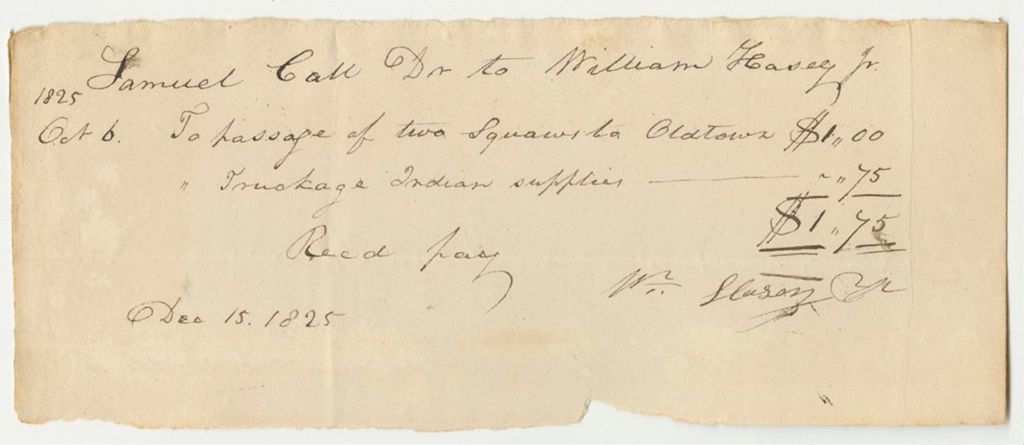 Samuel Call Dr to William Hasey Jr.
1825
Oct 6. To passage of two Squaws to Oldtown $1,,00
" Truckage Indian supplies ~ ,,75
$1,,75
Recd pay
Wm. Hasey Jr
Dec 15. 1825